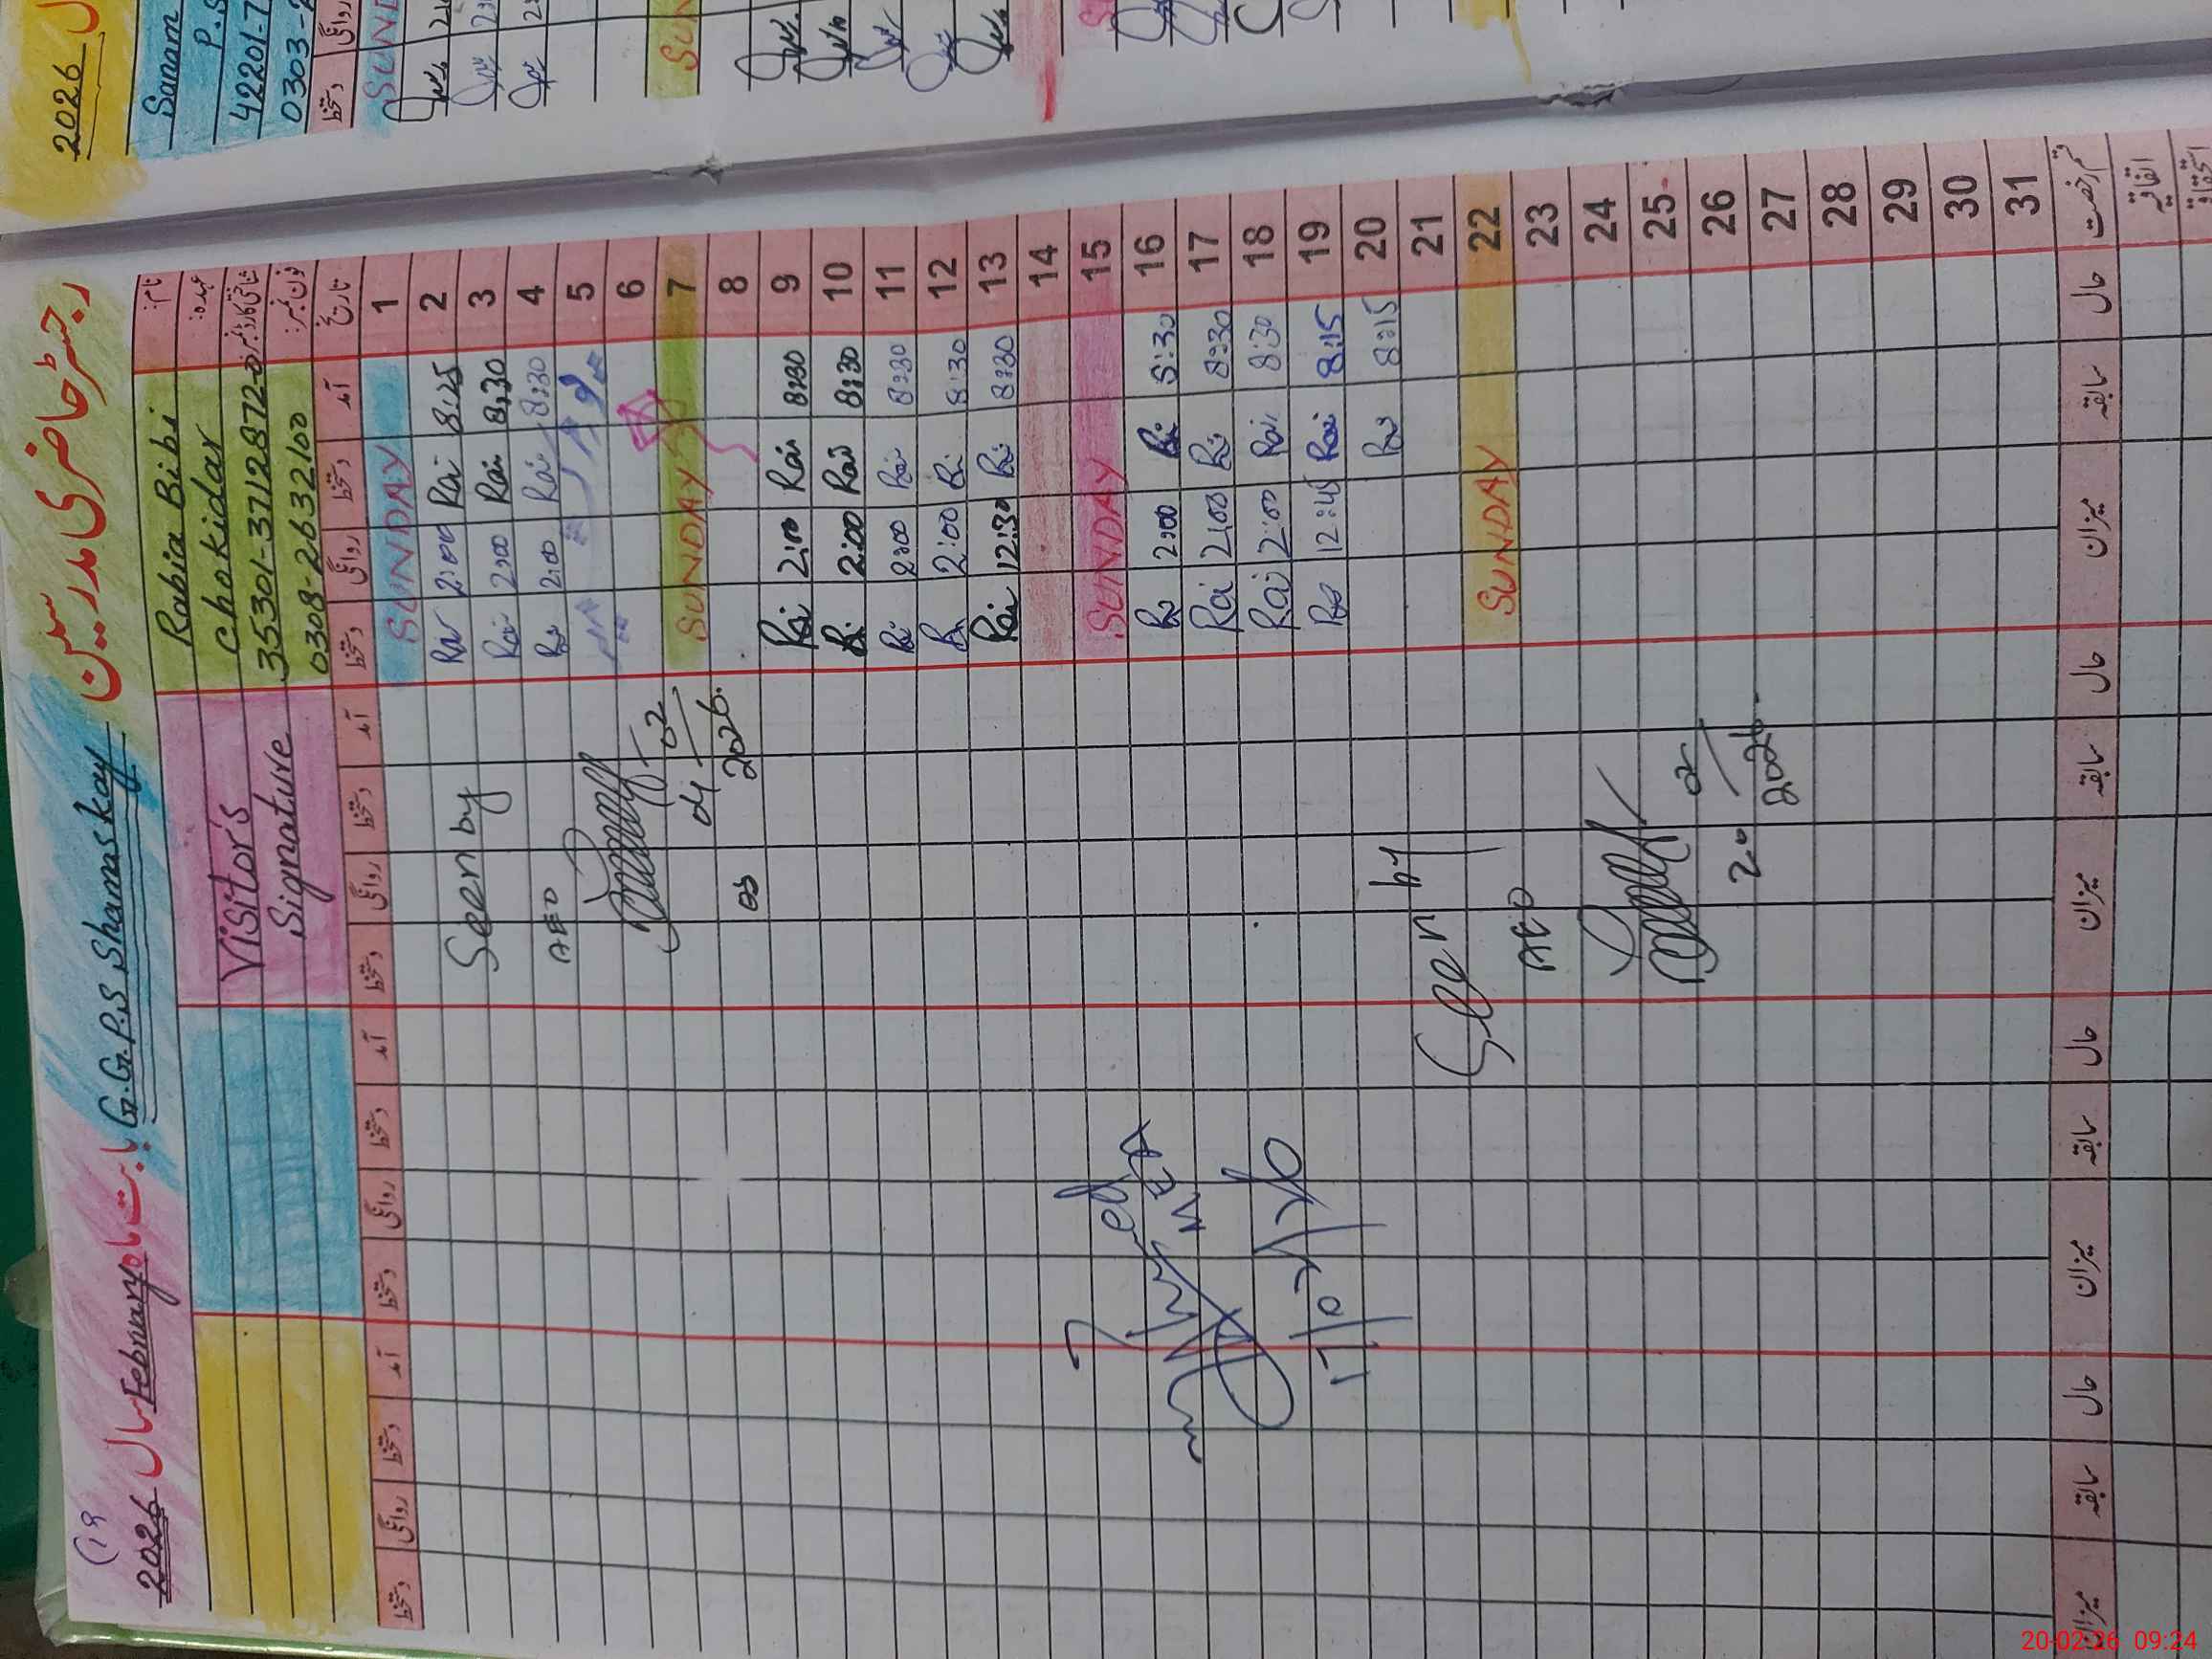 رجسٹر حاضری مدرسین G.G.P.S Shamskay بابت ماہ February سال 2026
نام: Rabia Bibi
عہدہ: Chokidar
شناختی کارڈ نمبر: 35301-3712872-0
فون نمبر: 0308-2632100
Visitor's
Signature
تاریخ آمد دستخط روانگی دستخط آمد دستخط روانگی دستخط آمد دستخط روانگی دستخط آمد دستخط روانگی دستخط
1 SUNDAY
2 8:25 Rai 2:00 Rai
3 8:30 Rai 2:00 Rai
4 8:30 Rai 2:00 Rai
5
6
7 SUNDAY
8
9 8:30 Rai 2:00 Rai
10 8:30 Rai 2:00 Rai
11 8:30 Rai 2:00 Rai
12 8:30 Rai 2:00 Rai
13 8:30 Rai 12:30 Rai
14
15 SUNDAY
16 8:30 Rai 2:00 Rai
17 8:30 Rai 2:00 Rai
18 8:30 Rai 2:00 Rai
19 8:15 Rai 12:45 Rai
20 8:15 Rai
21
22 SUNDAY
23
24
25
26
27
28
29
30
31
Seen by
AEO
04/02
2026
MEA
17/02/26
Seen by
AEO
20/02
2026
قسم رخصت حال سابقہ میزان حال سابقہ میزان حال سابقہ میزان حال سابقہ میزان
اتفاقیہ
استحقاقی
2026
Sanam
P.S
42201-7
0303-2
روانگی دستخط
SUND
SUN
20-02-26 09:24